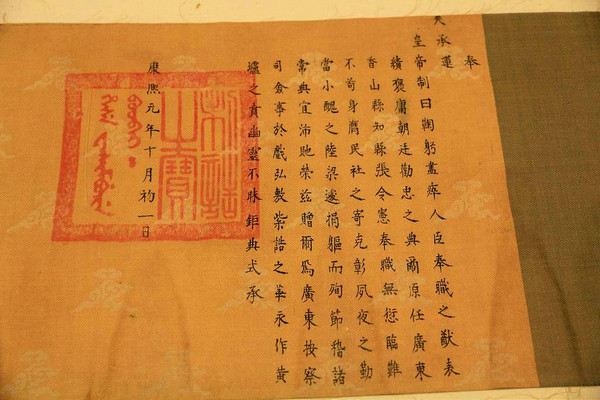 奉
天承運
皇帝制曰鞠躬盡瘁人臣奉職之猷表
績褒庸朝廷勸忠之典爾原任廣東
香山縣知縣張令憲奉職無愆臨難
不苟身膺民社之寄克彰夙夜之勤
當小醜之陸梁遂捐軀而殉節稽諸
常典宜沛貤榮茲贈爾爲廣東按察
司僉事於戲弘敷紫誥之華永作黄
壚之賁幽靈不昧鉅典式承
康熙元年十月初一日
制誥之寶